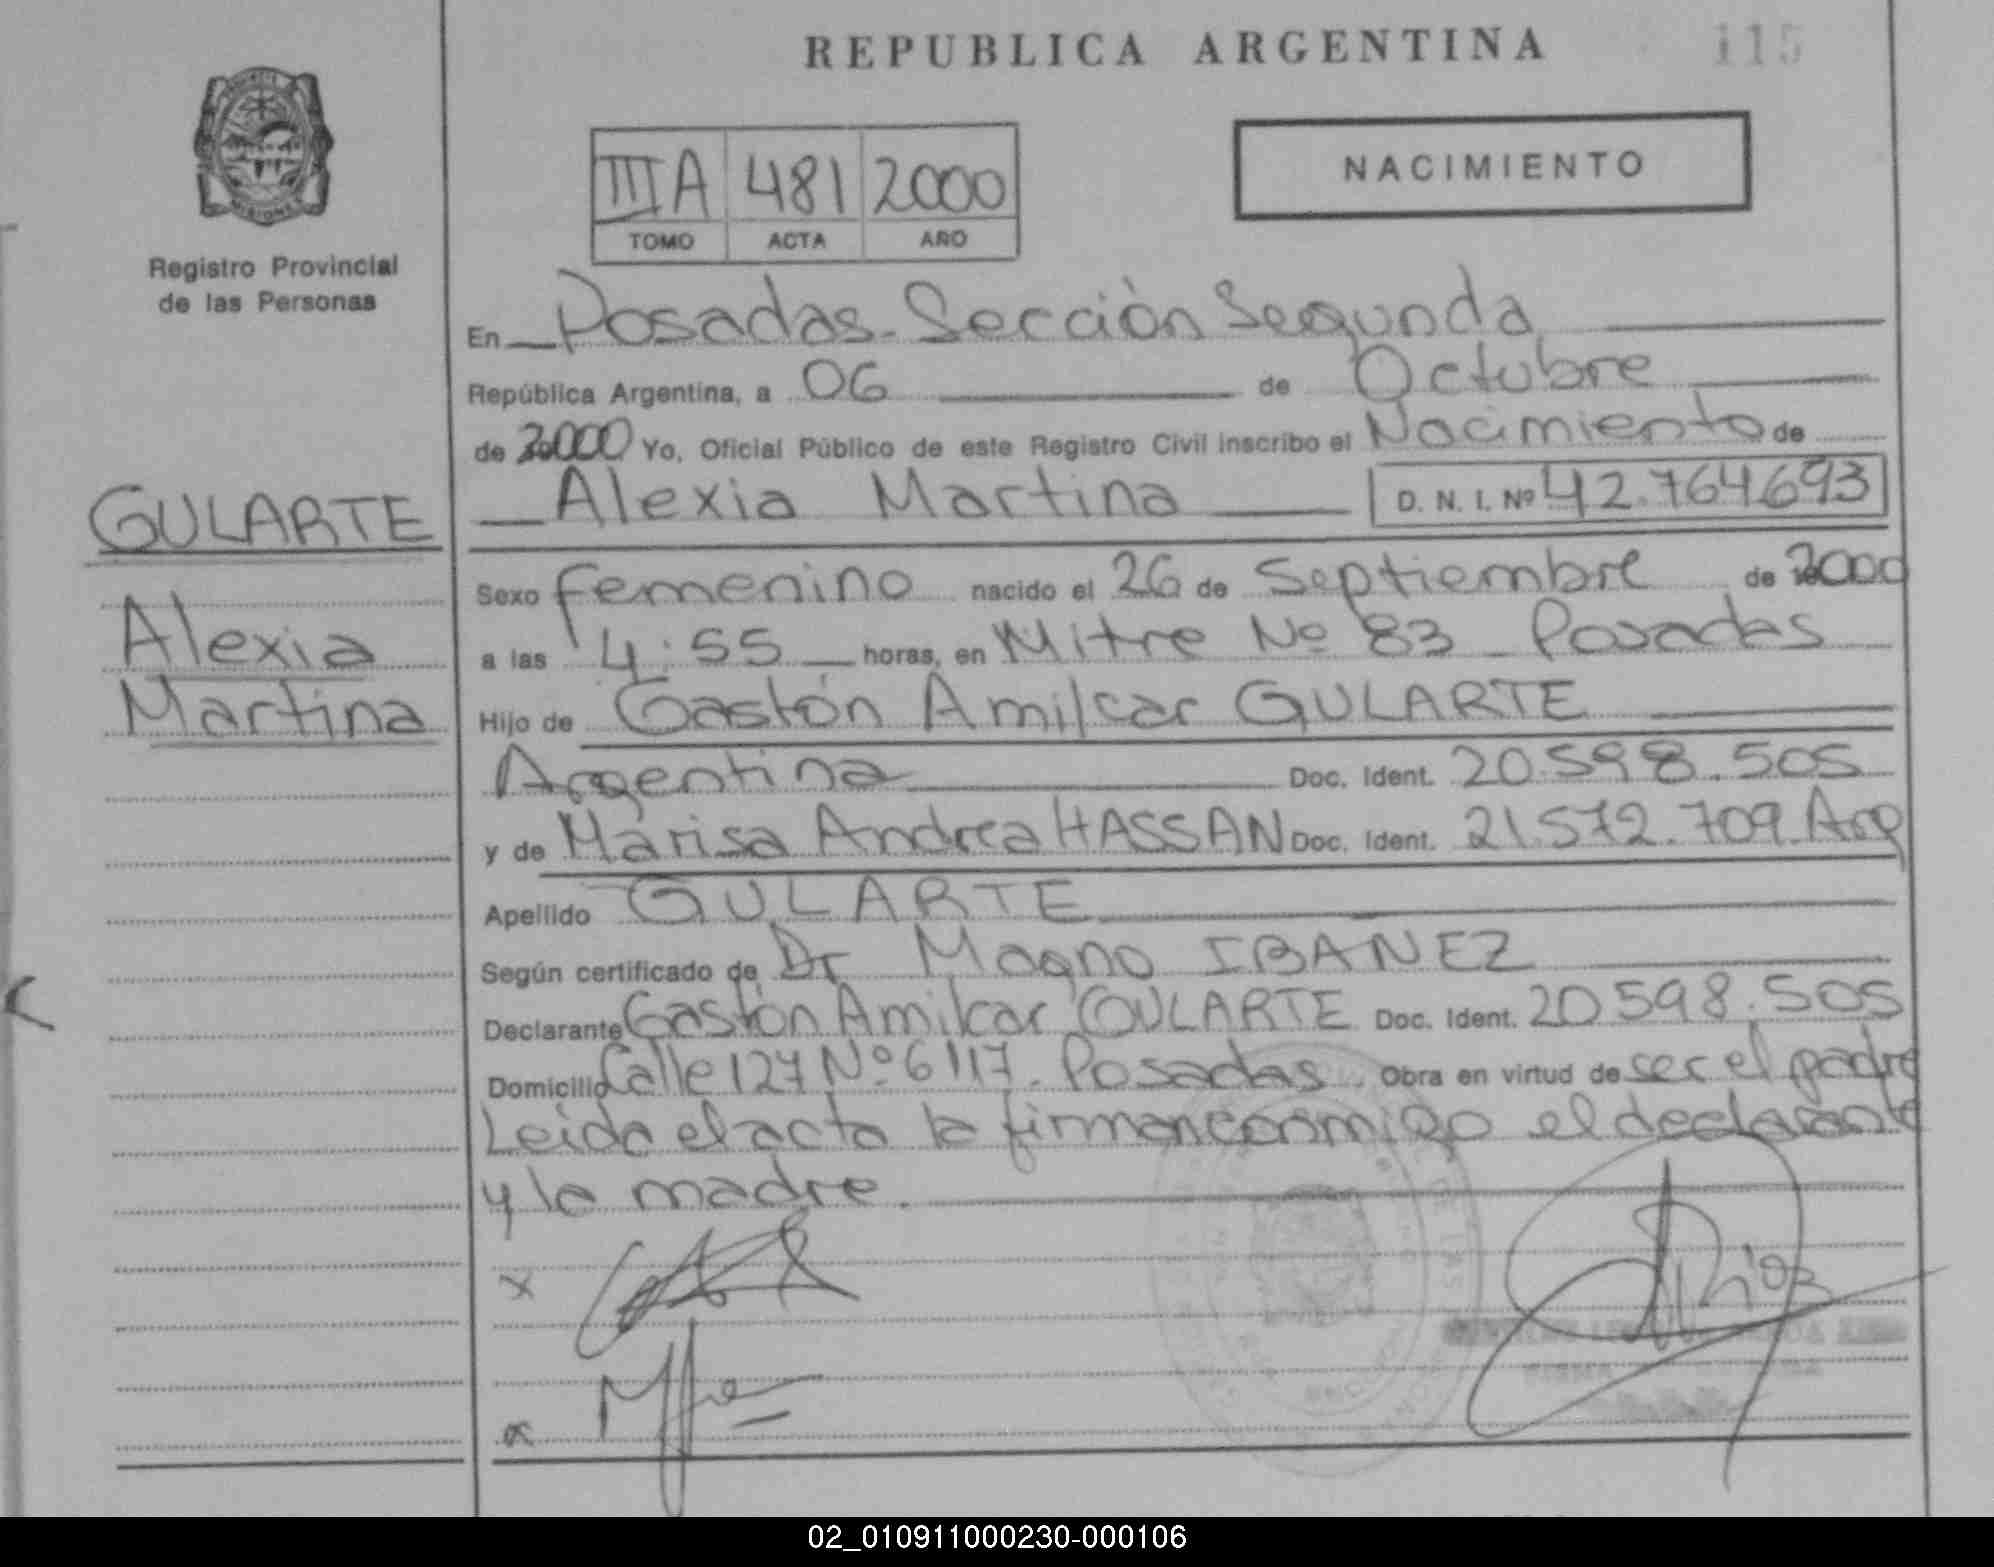 REPUBLICA ARGENTINA
115
MISIONES
Registro Provincial
de las Personas
IIIA 481 2000
TOMO ACTA AÑO
NACIMIENTO
En Posadas - Sección Segunda
República Argentina, a 06 de Octubre
de 2000 Yo, Oficial Público de este Registro Civil inscribo el Nacimiento de
Alexia Martina D. N. I. Nº 42.764.693
GULARTE
Alexia
Martina
Sexo femenino nacido el 26 de Septiembre de 2000
a las 4:55 horas, en Mitre Nº 83 - Posadas
Hijo de Gastón Amilcar GULARTE
Argentina Doc. Ident. 20.598.505
y de Marisa Andrea HASSAN Doc. Ident. 21.572.709 Arg
Apellido GULARTE
Según certificado de Dr Magno IBANEZ
Declarante Gastón Amilcar GULARTE Doc. Ident. 20598.505
Domicilio Calle 127 Nº 6117. Posadas Obra en virtud de ser el padre
Leida el acta la firman conmigo el declarante
y la madre.
x
02_010911000230-000106